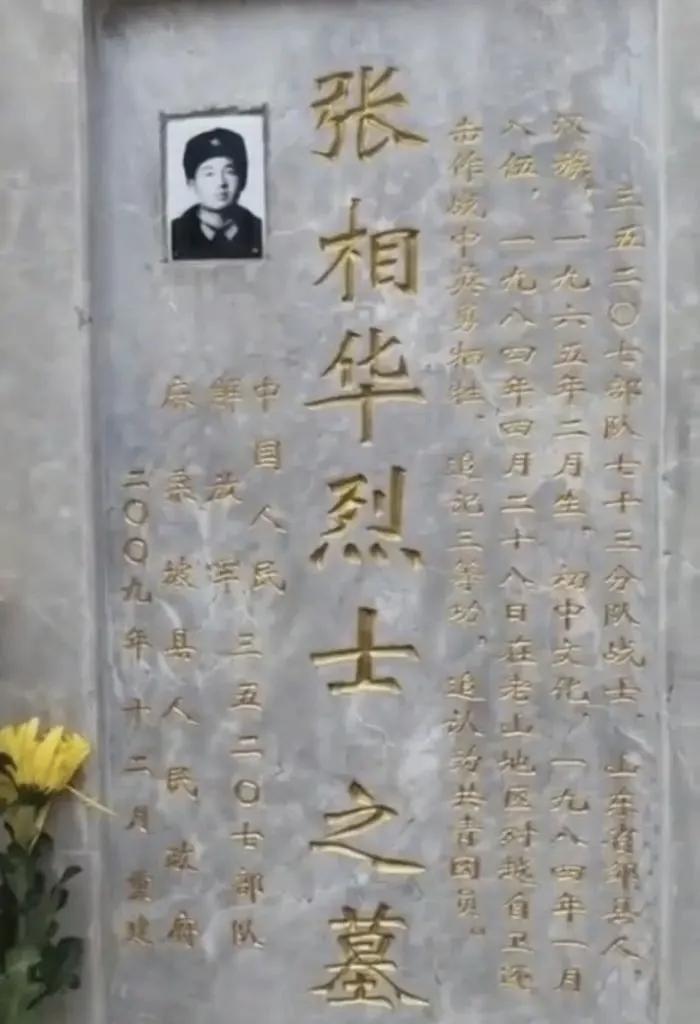 三五二〇七部队七十三分队战士，山东省邹县人，
汉族，一九六五年二月生，初中文化，一九八四年一月
入伍，一九八四年四月二十八日在老山地区对越自卫还
击作战中英勇牺牲，追记三等功，追认为共青团员。
张相华烈士之墓
中国人民
解放军三五二〇七部队
麻栗坡县人民政府
二〇〇九年十二月重建